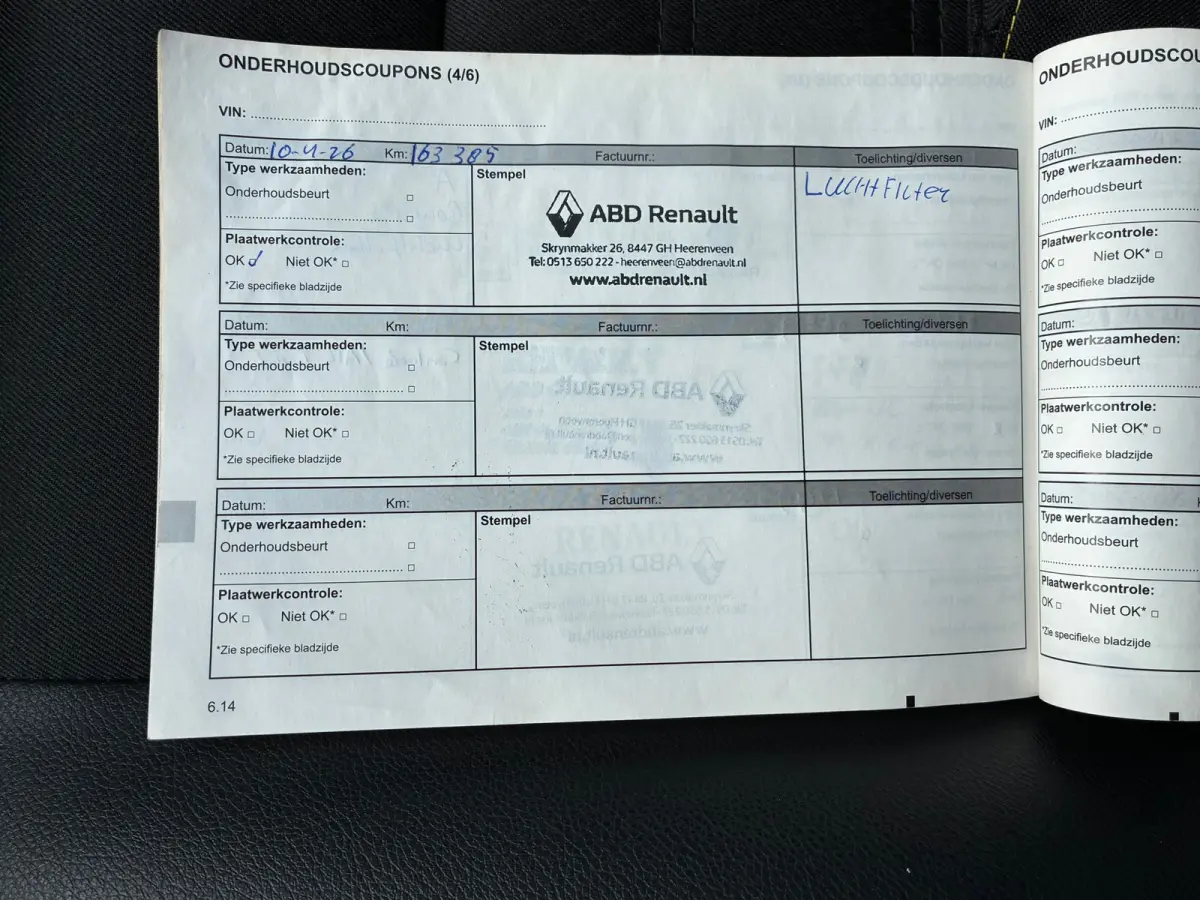 ONDERHOUDSCOUPONS (4/6)
VIN: ..........
Datum: 10-4-26 Km: 163 385 Factuurnr.: Toelichting/diversen
Type werkzaamheden:
Stempel
LUCHTFILTER
Onderhoudsbeurt
ABD Renault
Skrynmakker 26, 8447 GH Heerenveen
Tel: 0513 650 222 - heerenveen@abdrenault.nl
www.abdrenault.nl
Plaatwerkcontrole:
OK Niet OK*
*Zie specifieke bladzijde
Datum: Km: Factuurnr.: Toelichting/diversen
Type werkzaamheden:
Stempel
Onderhoudsbeurt
Plaatwerkcontrole:
OK Niet OK*
*Zie specifieke bladzijde
Datum: Km: Factuurnr.: Toelichting/diversen
Type werkzaamheden:
Stempel
Onderhoudsbeurt
Plaatwerkcontrole:
OK Niet OK*
*Zie specifieke bladzijde
6.14
ONDERHOUDSCOU
VIN: ..........
Datum:
Type werkzaamheden:
Onderhoudsbeurt
Plaatwerkcontrole:
OK Niet OK*
*Zie specifieke bladzijde
Datum:
Type werkzaamheden:
Onderhoudsbeurt
Plaatwerkcontrole:
OK Niet OK*
*Zie specifieke bladzijde
Datum:
Type werkzaamheden:
Onderhoudsbeurt
Plaatwerkcontrole:
OK Niet OK*
*Zie specifieke bladzijde